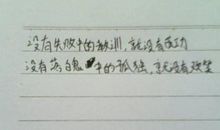 没有失败中的教训，就没有成功
没有落魄中的孤独，就没有欢笑